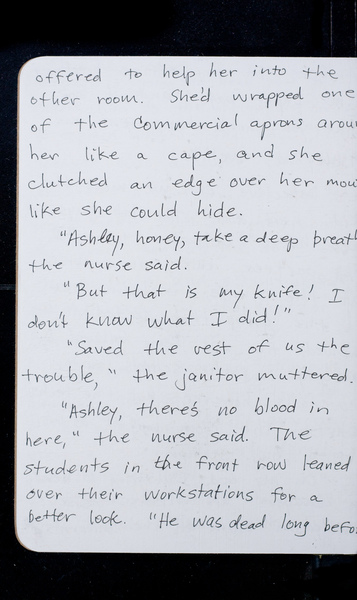 offered to help her into the
other room. She'd wrapped one
of the commercial aprons arou
her like a cape, and she
clutched an edge over her mou
like she could hide.
"Ashley, honey, take a deep breat
the nurse said.
"But that is my knife! I
don't know what I did!"
"Saved the rest of us the
trouble," the janitor muttered.
"Ashley, there's no blood in
here," the nurse said. The
students in the front row leaned
over their workstations for a
better look. "He was dead long befo